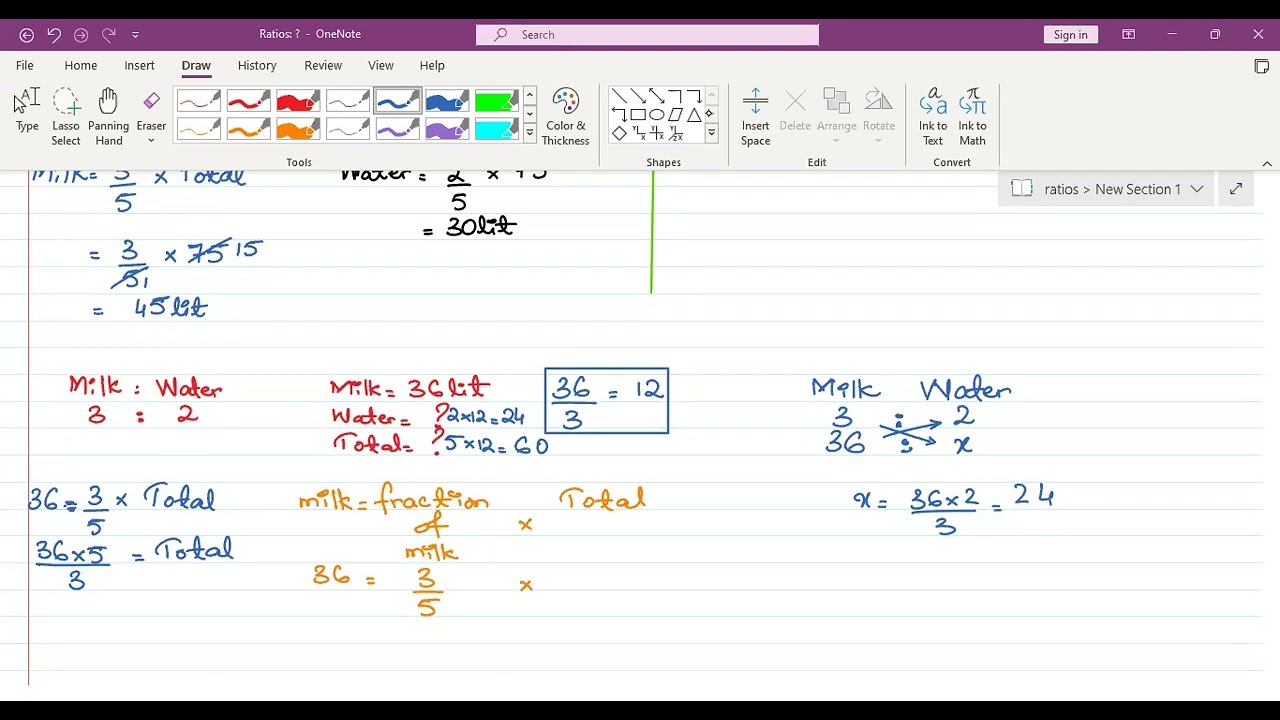 Ratios: ? - OneNote
Search
Sign in
File Home Insert Draw History Review View Help
Type
Lasso Select
Panning Hand
Eraser
Color & Thickness
Insert Space
Delete
Arrange
Rotate
Ink to Text
Ink to Math
Tools
Shapes
Edit
Convert
ratios > New Section 1
Milk = 3/5 × Total
= 3/5 × 75 15
1
= 45 lit
Water = 2/5 × 75
= 30 lit
Milk : Water
3 : 2
Milk = 36 lit
Water = ? 2×12 = 24
Total = ? 5×12 = 60
36/3 = 12
Milk Water
3 : 2
36 : x
x = 36×2/3 = 24
36 = 3/5 × Total
36×5/3 = Total
milk = fraction of milk × Total
36 = 3/5 ×